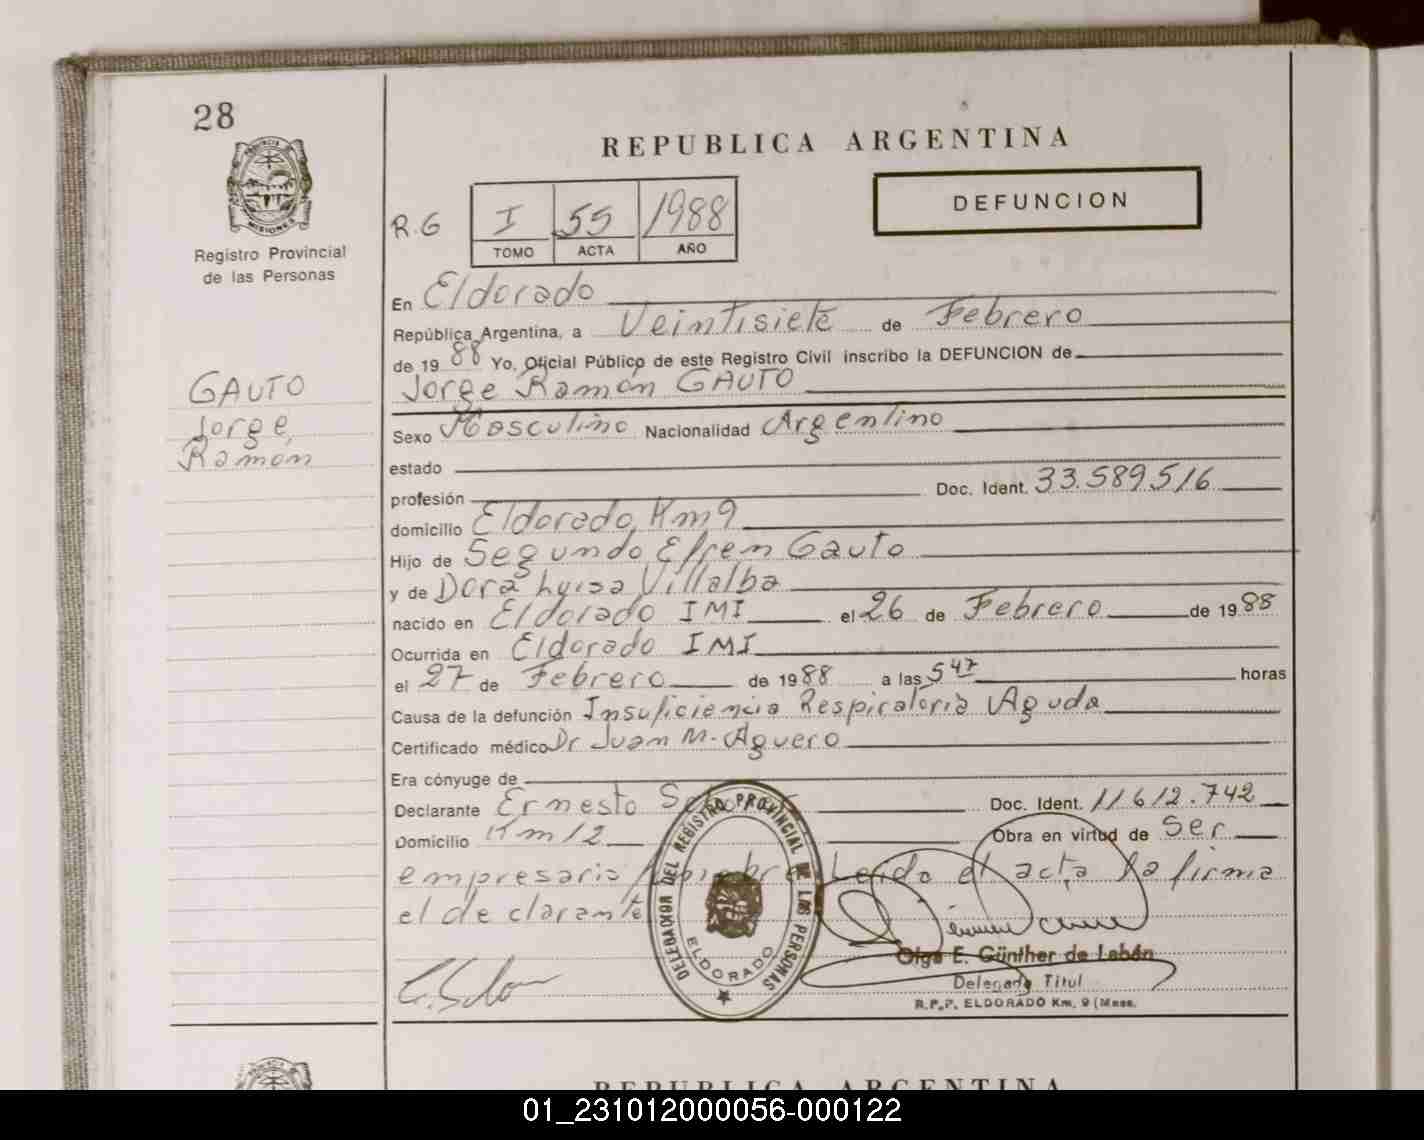 28
PROVINCIA DE
MISIONES
Registro Provincial
de las Personas
REPUBLICA ARGENTINA
DEFUNCION
R.G I 55 1988
TOMO ACTA AÑO
En Eldorado
República Argentina, a Veintisiete de Febrero
de 1988 Yo, Oficial Público de este Registro Civil inscribo la DEFUNCION de
Jorge Ramón GAUTO
GAUTO
Jorge,
Ramon
Sexo Masculino Nacionalidad Argentino
estado
profesión Doc. Ident. 33.589.516
domicilio Eldorado, Km 9
Hijo de Segundo Efren Gauto
y de Dora Luisa Villalba
nacido en Eldorado IMI el 26 de Febrero de 1988
Ocurrida en Eldorado IMI
el 27 de Febrero de 1988 a las 5 47 horas
Causa de la defunción Insuficiencia Respiratoria Aguda
Certificado médico Dr Juan M. Aguero
Era cónyuge de
Declarante Ernesto Doc. Ident. 11.612.742
Domicilio Km 12 Obra en virtud de Ser
empresario fúnebre Leida el acta la firma
el declarante
DELEGACION DEL REGISTRO PROVINCIAL DE LAS PERSONAS
ELDORADO
Olga E. Günther de Labán
Delegada Titul
R.P.P. ELDORADO Km. 9 (Mnes.
REPUBLICA ARGENTINA
01_231012000056-000122